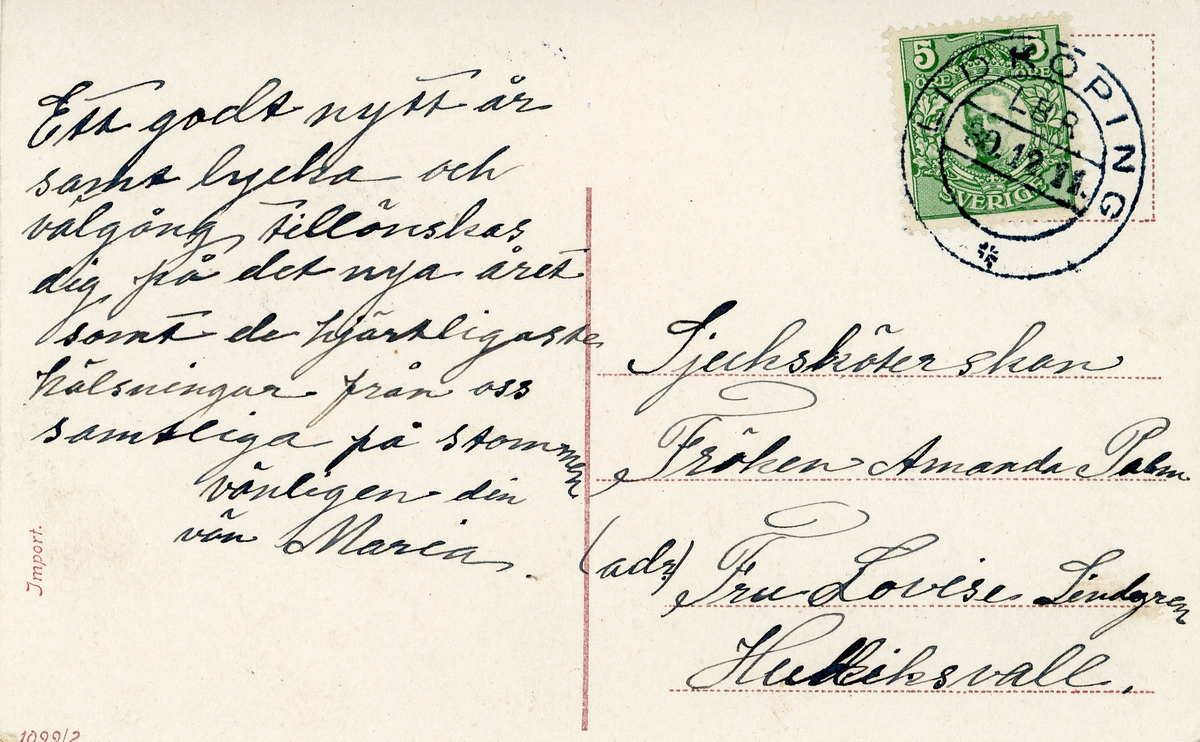 Ett godt nytt år
samt lycka och
välgång tillönskas
dig på det nya året
samt de hjärtligaste
hälsningar från oss
samtliga på stommen
vänligen din
vän Maria.
Import.
1099/2
5 5
ÖRE ÖRE
SVERIGE
LIDKÖPING
LBR
30.12.11.
Sjuksköterskan
Fröken Amanda Palm
(adr) Fru Lovise Lindgren
Hudiksvall.